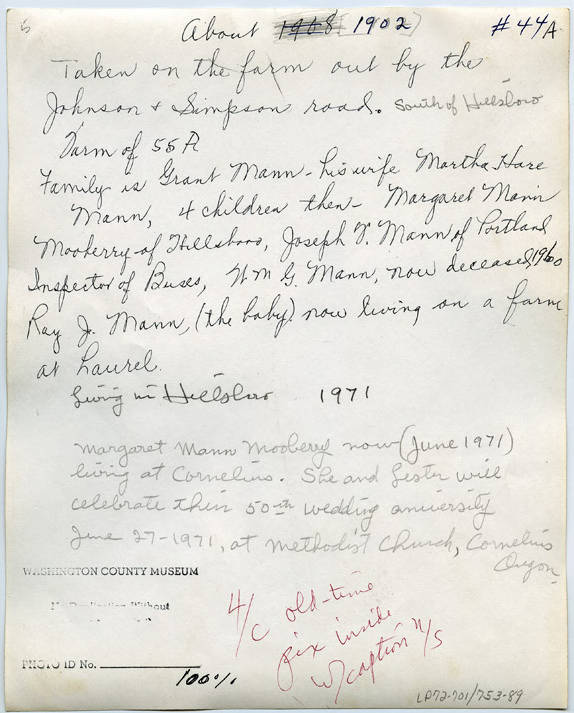 5
About 1968 1902 #44A
Taken on the farm out by the
Johnson + Simpson road. South of Hillsboro
Farm of 55 A
Family is Grant Mann - his wife Martha Hare
Mann, 4 children then - Margaret Mann
Mooberry of Hillsboro, Joseph T. Mann of Portland
Inspector of Buses, Wm G. Mann, now deceased, 1960
Ray J. Mann, (the baby) now living on a farm
at Laurel.
Living in Hillsboro 1971
Margaret Mann Mooberry now (June 1971)
living at Cornelius. She and Lester will
celebrate their 50th wedding aniversity
June 27-1971, at Methodist Church, Cornelius
Oregon
WASHINGTON COUNTY MUSEUM
Without
PHOTO ID No.
4/c old-time
pix inside
w/caption n/s
100%
LP72-701/753-89